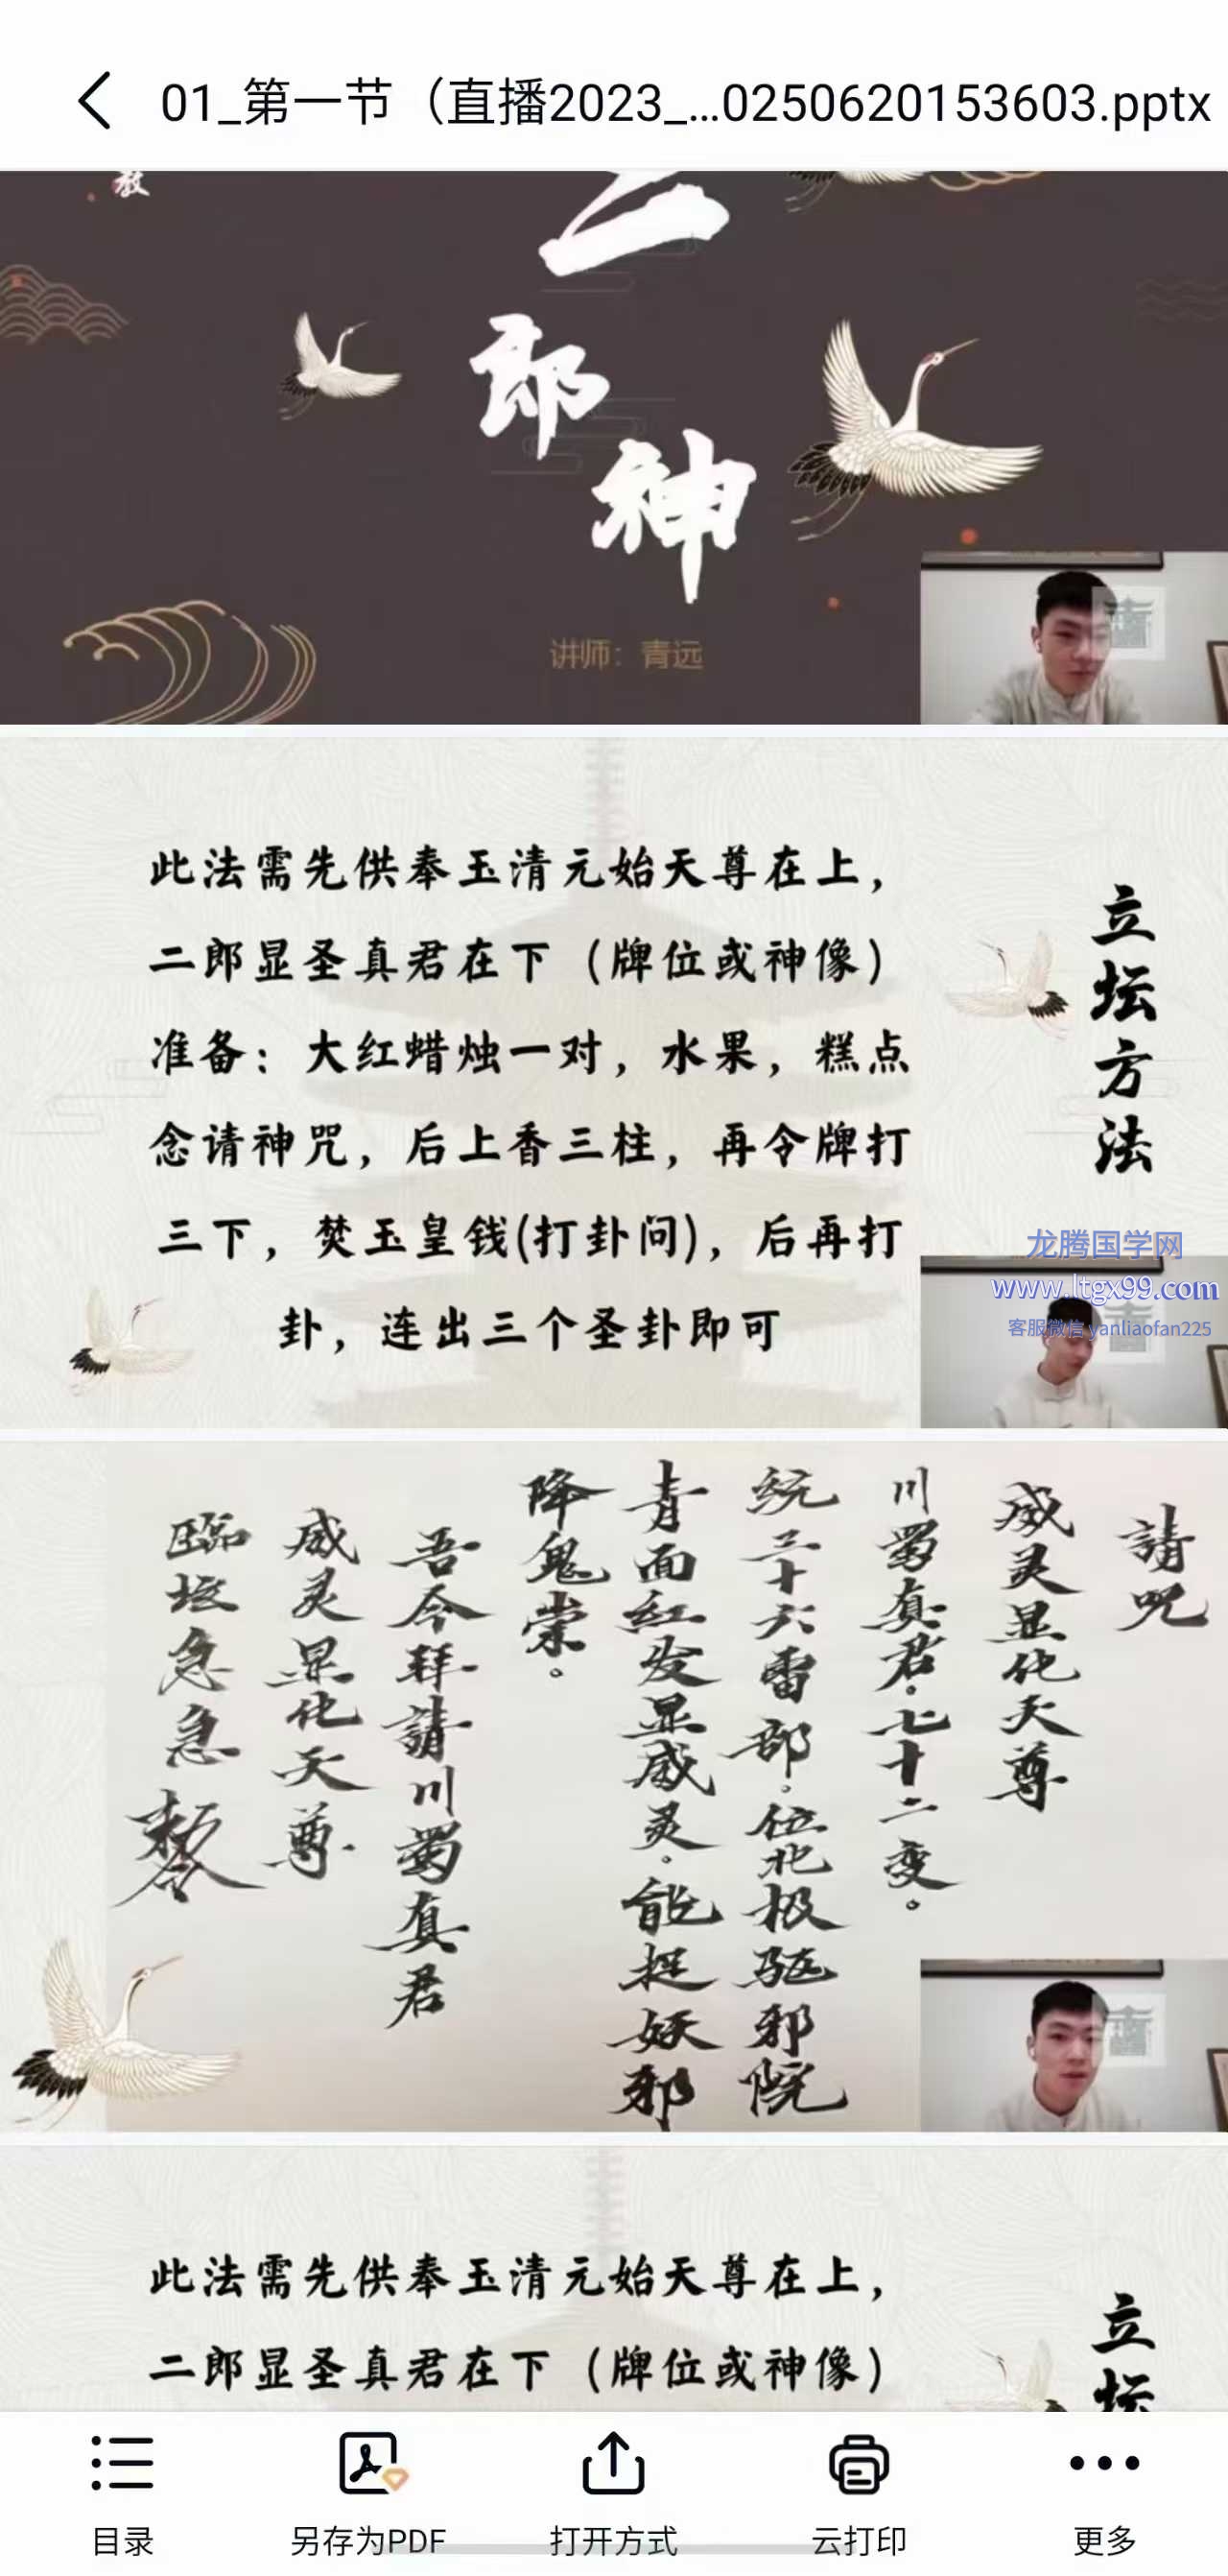 01_第一节（直播2023_...0250620153603.pptx
教
二
郎
神
讲师：青远
此法需先供奉玉清元始天尊在上，
二郎显圣真君在下（牌位或神像）
准备：大红蜡烛一对，水果，糕点
念请神咒，后上香三柱，再令牌打
三下，焚玉皇钱(打卦问)，后再打
卦，连出三个圣卦即可
立坛方法
龙腾国学网
www.ltgx99.com
客服微信 yanliaofan225
請咒
威灵显化天尊
川蜀真君。七十二变。
统三十六雷部。位北极驱邪院
青面红发显威灵。能捉妖邪
降鬼祟。
吾今拜請川蜀真君
威灵显化天尊
臨坛急急
此法需先供奉玉清元始天尊在上，
二郎显圣真君在下（牌位或神像）
立坛
目录
另存为PDF
打开方式
云打印
更多